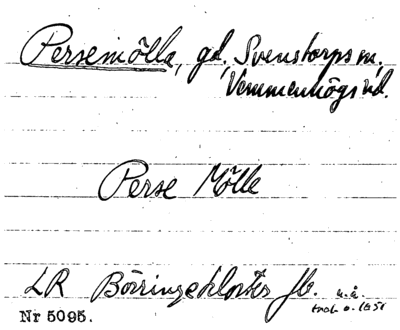 Persemölla, gd, Svenstorps m,
Vemmenhögs hd.
Perse Mölle
LR Börringekloster Jb. u.å.
Nr 5095.